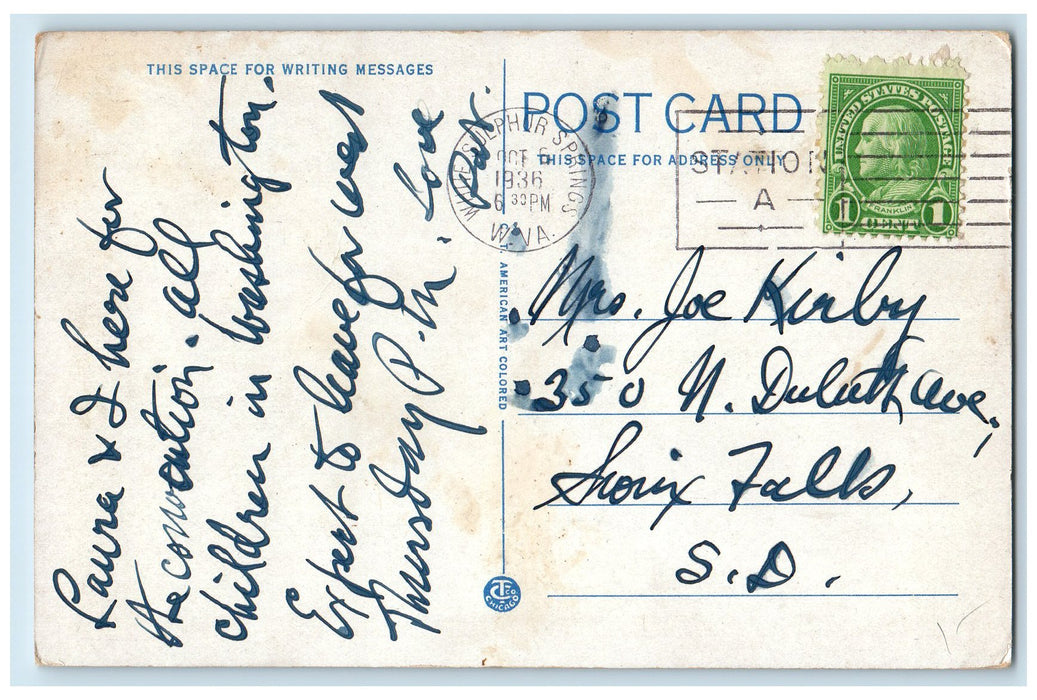 THIS SPACE FOR WRITING MESSAGES
Laura & I here for
the convention. all
children in Washington.
Expect to leave for west
Thursday P.M. Love
POST CARD
THIS SPACE FOR ADDRESS ONLY
WHITE SULPHUR SPRINGS
OCT 6
1936
6 30 PM
W. VA.
STATION
A
UNITED STATES POSTAGE
FRANKLIN
1 CENT 1
Mrs. Joe Kirby
350 N. Duluth Ave,
Sioux Falls,
S.D.
AMERICAN ART COLORED
CT CO
CHICAGO